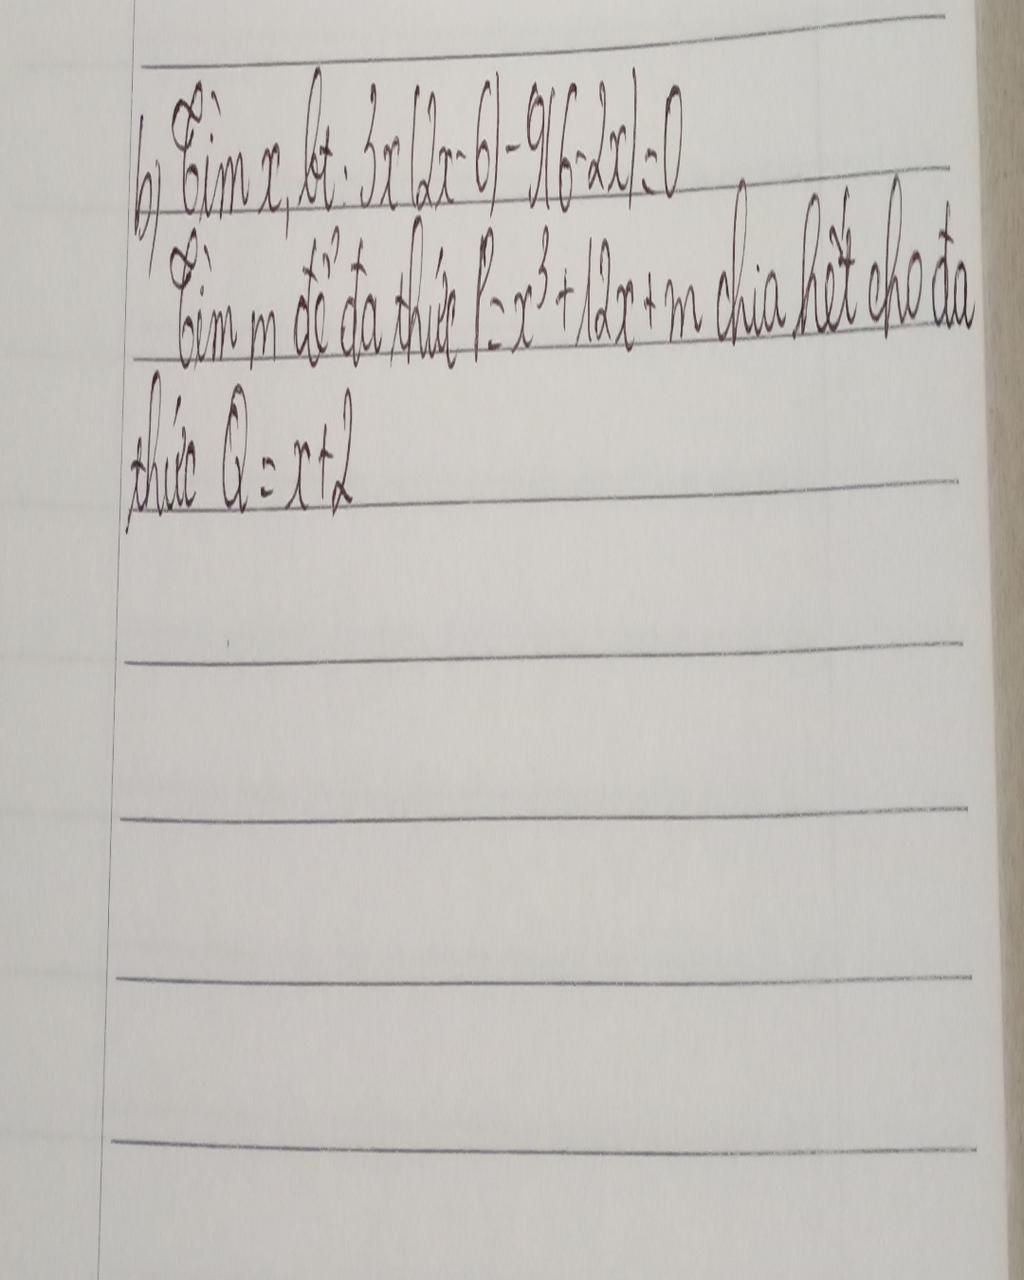 b) Tìm x, bt: 3x(2x-6)-9(6-2x)=0
Tìm m để đa thức P=x³+12x+m chia hết cho đa
thức Q=x+2